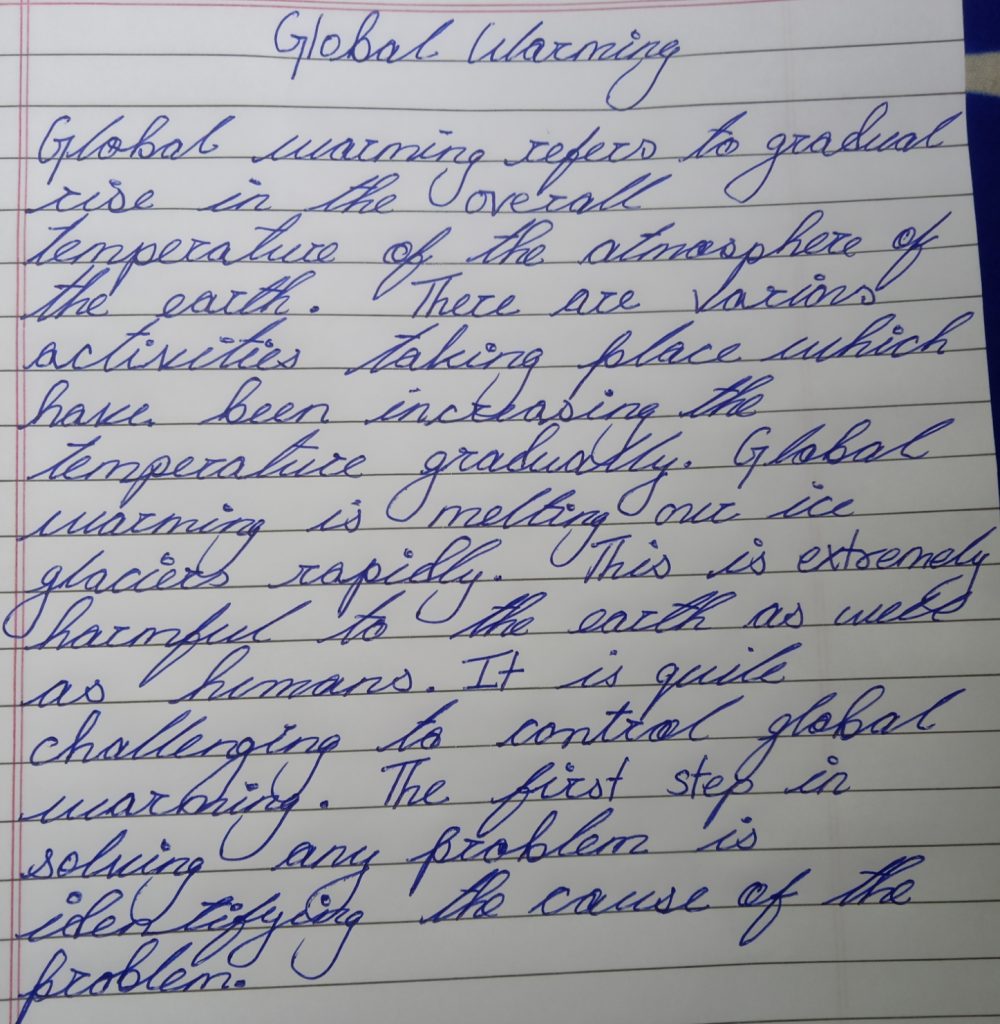 Global Warming
Global warming refers to gradual
rise in the overall
temperature of the atmosphere of
the earth. There are various
activities taking place which
have been increasing the
temperature gradually. Global
warming is melting our ice
glaciers rapidly. This is extremely
harmful to the earth as well
as humans. It is quite
challenging to control global
warming. The first step in
solving any problem is
identifying the cause of the
problem.